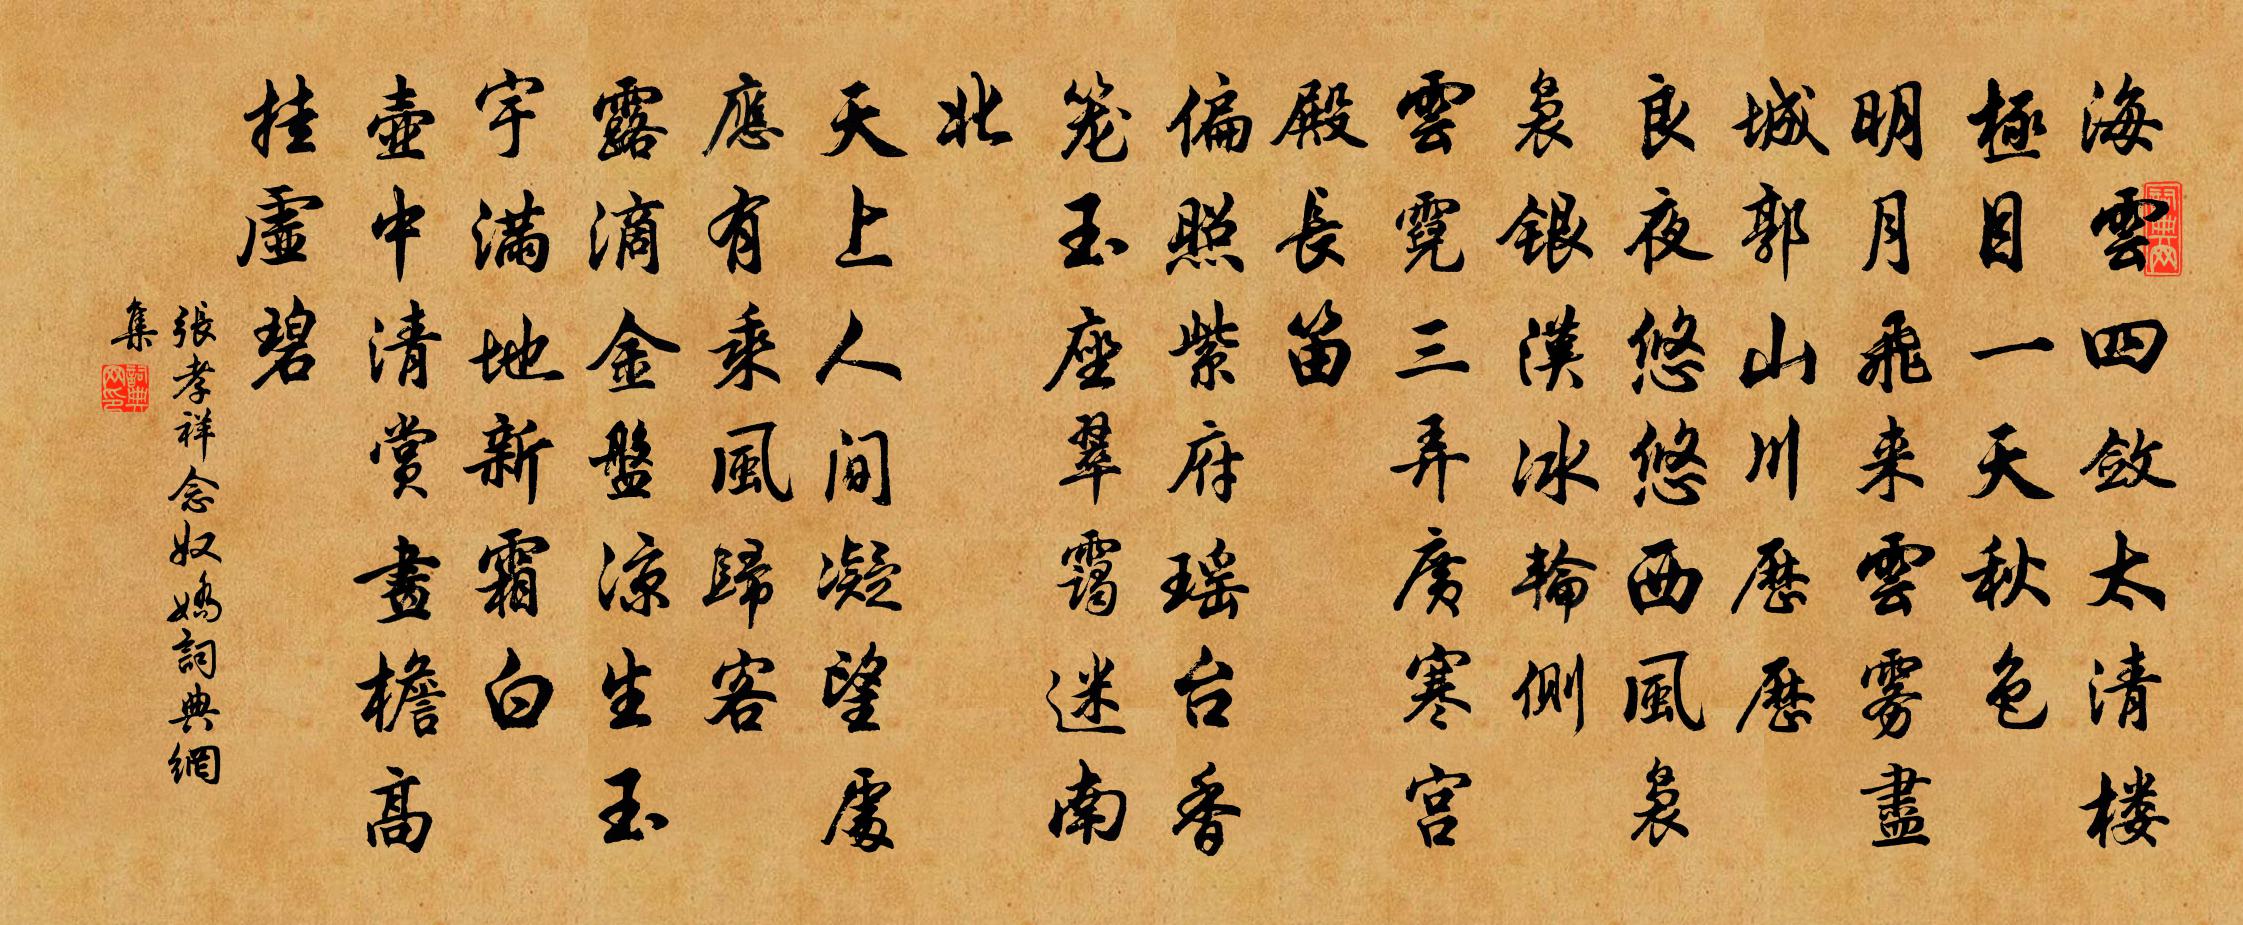 海雲四斂太清楼
極目一天秋色
明月飛来雲雾盡
城郭山川歷歷
良夜悠悠西風袅
袅銀漢冰輪側
雲霓三弄廣寒宮
殿長笛
偏照紫府瑶台香
笼玉座翠靄迷南
北
天上人间凝望處
應有乘風歸客
露滴金盤涼生玉
宇满地新霜白
壺中清賞畫檐高
挂虛碧
張孝祥念奴嬌詞典網
集
詞典网印
詞典网